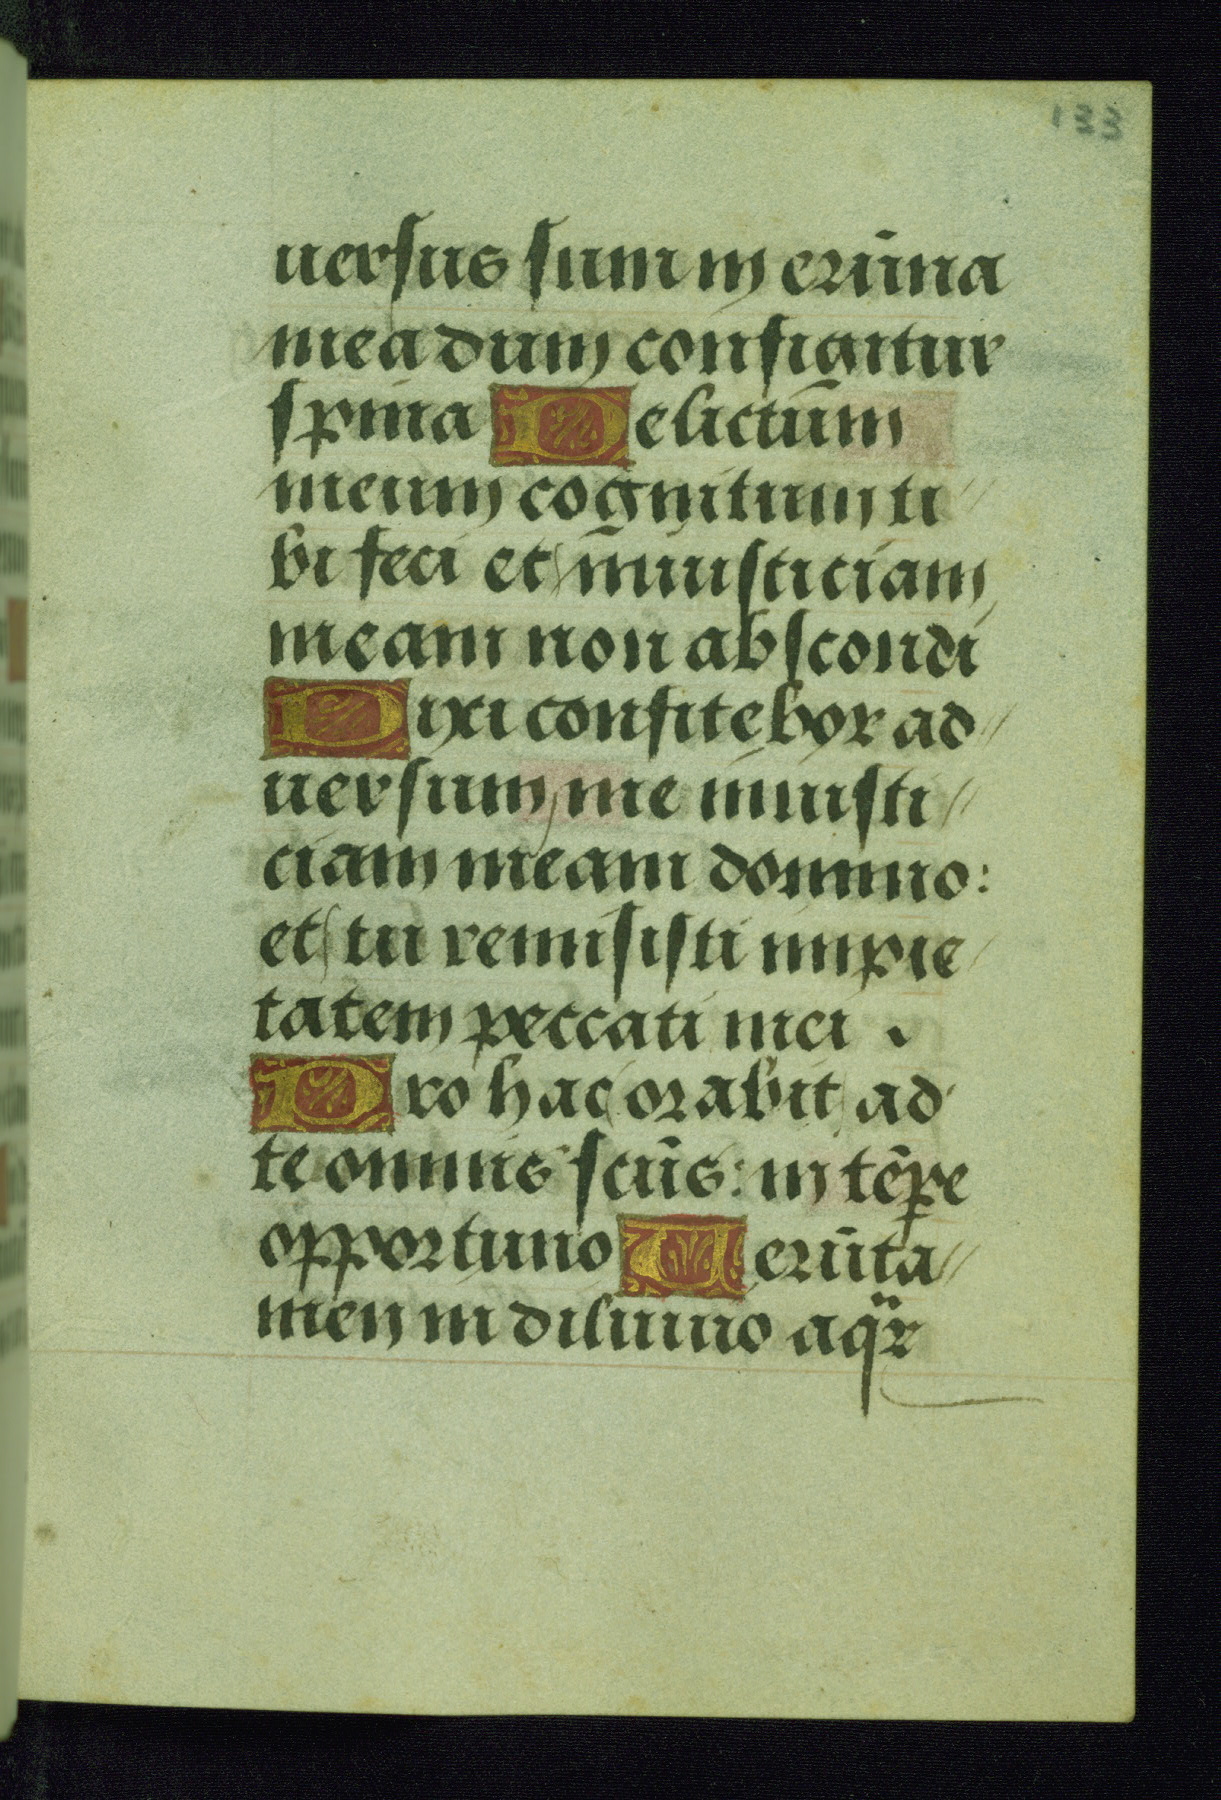 133
uersus sum in erūna
mea dum configitur
spina Delictum
meum cognitum ti
bi feci et iniusticiam
meam non abscondi
Dixi confitebor ad
uersum me iniusti
ciam meam domino:
et tu remisisti impie
tatem peccati mei .
Pro hac orabit ad
te omnis scūs: in tēpe
opportuno Uerūta
men in diluuio aqr̄